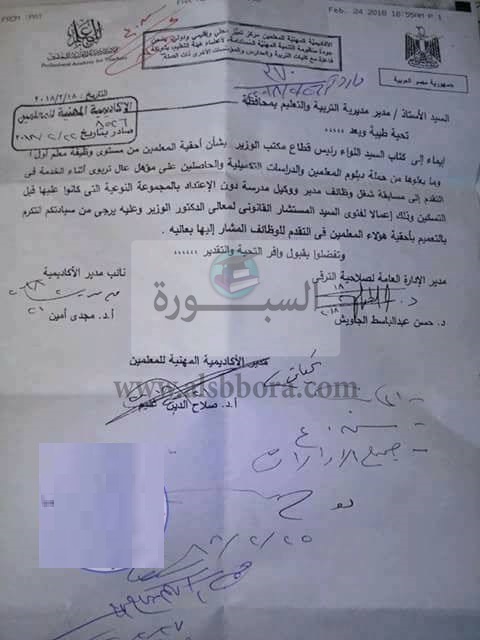 FROM :PAT
Feb. 24 2018 10:55AM P 1
Professional Academy for Teachers
الأكاديمية المهنية للمعلمين مركز تميز محلي وإقليمي ودولي يضمن
جودة منظومة التنمية المهنية المستدامة لأعضاء هيئة التعليم بشراكة
فاعلة مع كليات التربية والمدارس والمؤسسات الأخرى ذات الصلة
جمهورية مصر العربية
التاريخ : ٢٠١٨/٢/١٨
الأكاديمية المهنية للمعلمين
صادر بتاريخ
السيد الأستاذ / مدير مديرية التربية والتعليم بمحافظة
تحية طيبة وبعد ......
إيماء إلى كتاب السيد اللواء رئيس قطاع مكتب الوزير بشأن أحقية المعلمين من مستوى وظيفة معلم أول أ
وما يعلوها من حملة دبلوم المعلمين والدراسات التكميلية والحاصلين على مؤهل عال تربوى أثناء الخدمة فى
التقدم إلى مسابقة شغل وظائف مدير ووكيل مدرسة دون الإعتداد بالمجموعة النوعية التى كانوا عليها قبل
التسكين وذلك إعمالا لفتوى السيد المستشار القانونى لمعالى الدكتور الوزير وعليه يرجى من سيادتكم التكرم
بالتعميم بأحقية هؤلاء المعلمين فى التقدم للوظائف المشار إليها بعاليه .
وتفضلوا بقبول وافر التحية والتقدير ......
مدير الإدارة العامة لصلاحية الترقي
نائب مدير الأكاديمية
د. حسن عبدالباسط الجاويش
أ.د. مجدى أمين
السبورة
مدير الأكاديمية المهنية للمعلمين
www.alsbbora.com
أ.د. صلاح الدين
جميع الإدارات